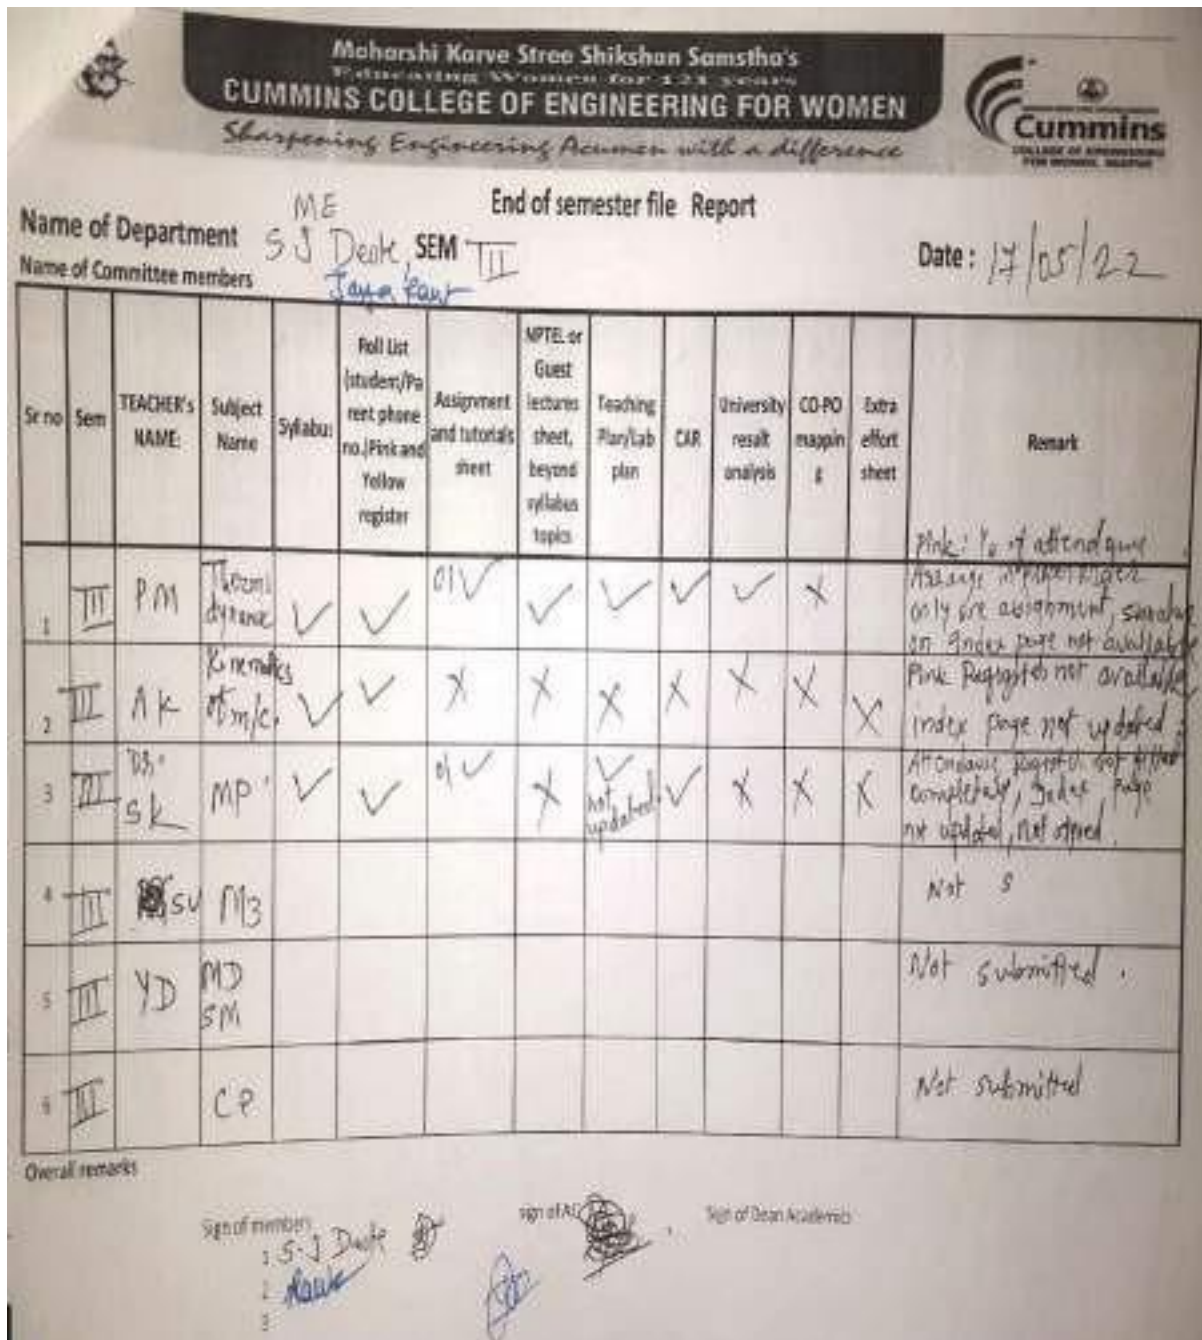 Maharshi Karve Stree Shikshan Samstha's
Educating Women for 121 years
CUMMINS COLLEGE OF ENGINEERING FOR WOMEN
Sharpening Engineering Acumen with a difference
Cummins
COLLEGE OF ENGINEERING
FOR WOMEN, NAGPUR
End of semester file Report
Name of Department ME
SEM III
Date : 17/05/22
Name of Committee members S J Deote,
Sr no Sem TEACHER's NAME: Subject Name Syllabus Roll List (student/Parent phone no.)Pink and Yellow register Assignment and tutorials sheet NPTEL or Guest lectures sheet, beyond syllabus topics Teaching Plan/Lab plan CAR University result analysis CO-PO mapping Extra effort sheet Remark
1 III PM ✓ ✓ 01 ✓ ✓ ✓ ✓ ✓ X Pink: % of
only one assignment,
on Index page not available
2 III AK Kinematics of m/c. ✓ ✓ X X X X X X X Pink not available,
index page not updated.
3 III SK MP ✓ ✓ 01 ✓ X ✓ not updated ✓ X X X
completely, Index Page
not updated, not
4 III SU M3 Not S
5 III YD MD SM Not submitted.
6 III CP Not submitted
Overall remarks
Sign of members
sign of
Sign of Dean Academics
1 S.J Deote
2
3